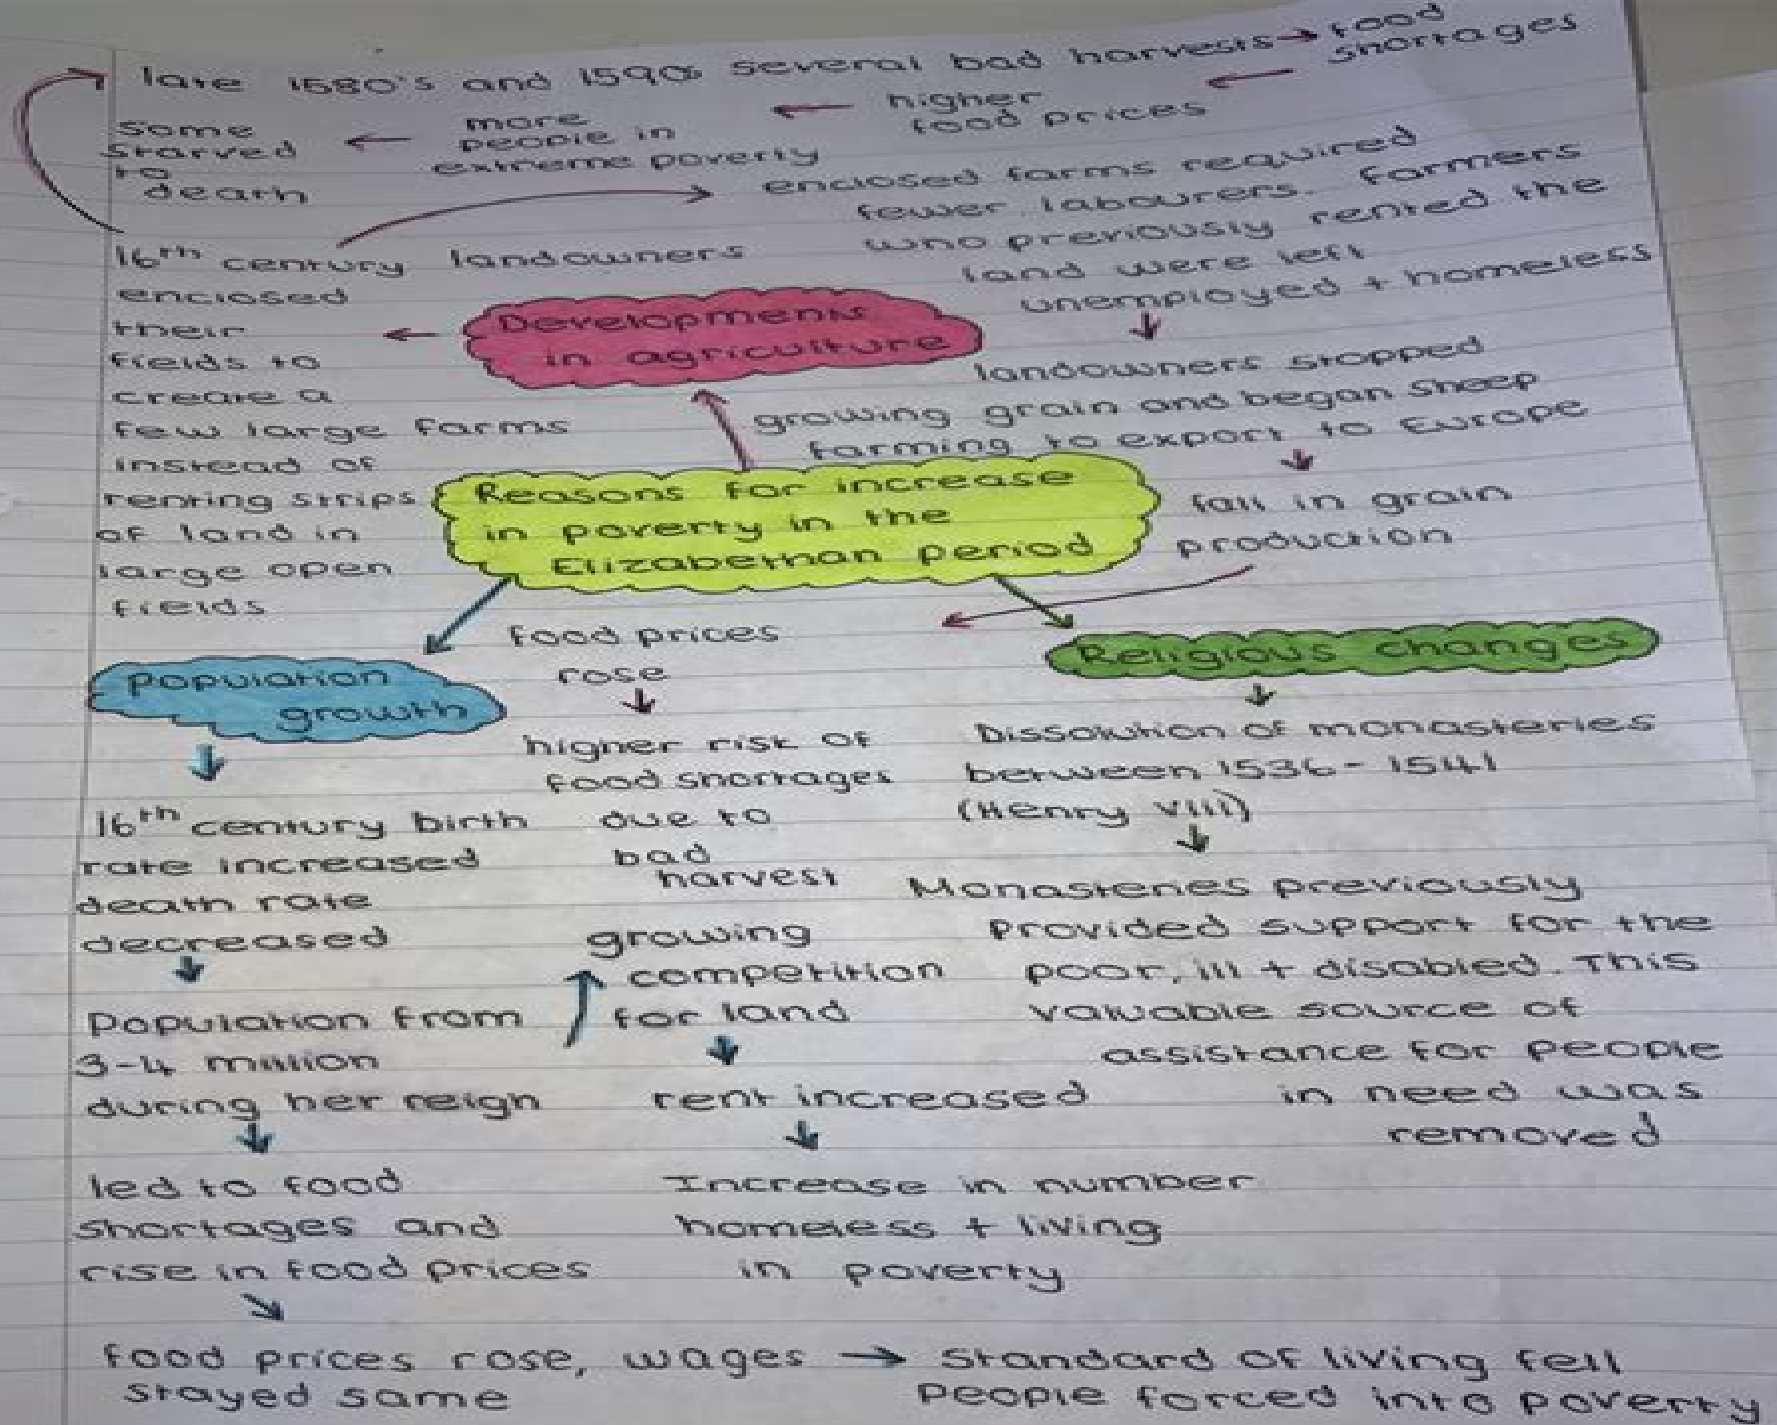 late 1580's and 1590s several bad harvests → food
shortages
higher
food prices
more
people in
extreme poverty
some
starved
to
death
16th century landowners
enclosed
their
fields to
create a
few large farms
instead of
renting strips
of land in
large open
fields
enclosed farms required
fewer labourers. Farmers
who previously rented the
land were left
unemployed + homeless
landowners stopped
growing grain and began sheep
farming to export to Europe
fall in grain
production
food prices
rose
higher risk of
food shortages
due to
bad
harvest
Developments
in agriculture
Reasons for increase
in poverty in the
Elizabethan period
Population
growth
16th century birth
rate increased
death rate
decreased
Population from
3-4 million
during her reign
led to food
shortages and
rise in food prices
food prices rose, wages → Standard of living fell
stayed same
People forced into poverty
growing
competition
for land
rent increased
Increase in number
homeless + living
in poverty
Religious changes
Dissolution of monasteries
between 1536 - 1541
(Henry VIII)
Monasteries previously
Provided support for the
poor, ill + disabled. This
valuable source of
assistance for people
in need was
removed